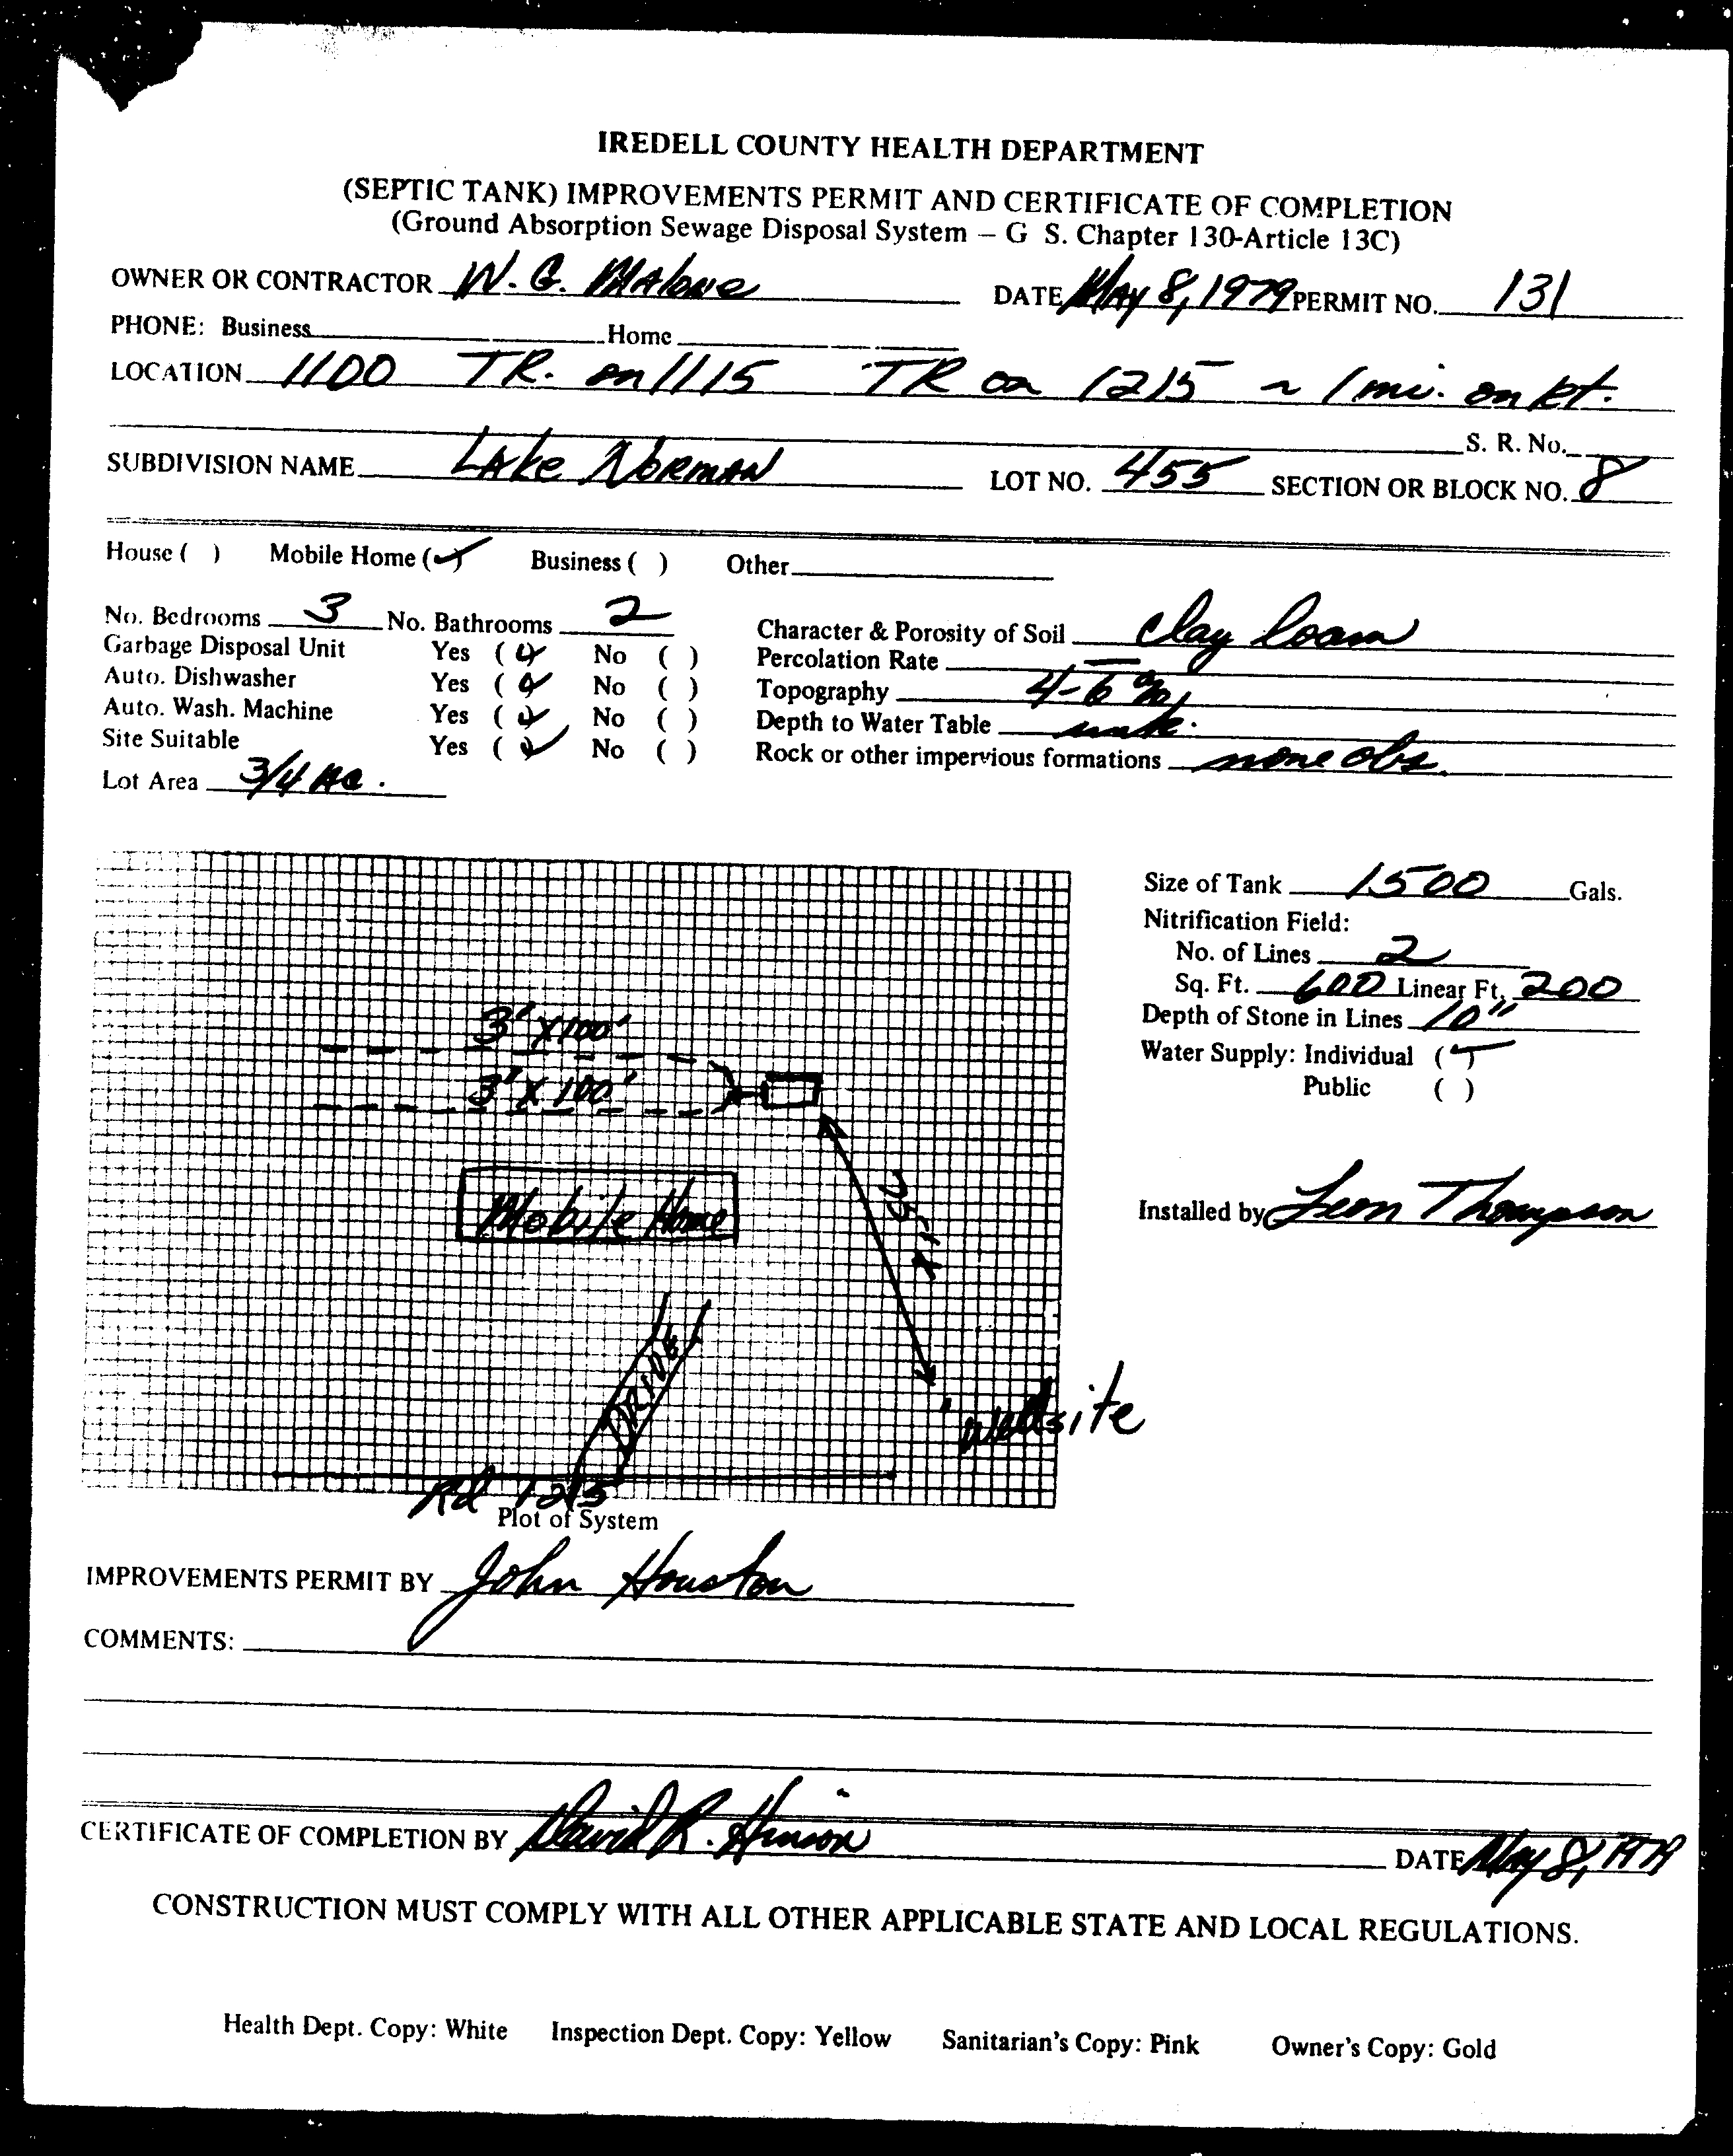 IREDELL COUNTY HEALTH DEPARTMENT
(SEPTIC TANK) IMPROVEMENTS PERMIT AND CERTIFICATE OF COMPLETION
(Ground Absorption Sewage Disposal System – G S. Chapter 130-Article 13C)
OWNER OR CONTRACTOR W. G. Malone DATE May 8, 1979 PERMIT NO. 131
PHONE: Business Home
LOCATION 1100 TR. on 1115 TR on 1215 ~ 1 mi. on Rt.
S. R. No.
SUBDIVISION NAME Lake Norman LOT NO. 455 SECTION OR BLOCK NO. 8
House ( ) Mobile Home (✓) Business ( ) Other
No. Bedrooms 3 No. Bathrooms 2
Garbage Disposal Unit Yes (✓) No ( )
Auto. Dishwasher Yes (✓) No ( )
Auto. Wash. Machine Yes (✓) No ( )
Site Suitable Yes (✓) No ( )
Lot Area 3/4 Ac.
Character & Porosity of Soil Clay loam
Percolation Rate —
Topography 4-6 %
Depth to Water Table unk.
Rock or other impervious formations none obs.
Size of Tank 1500 Gals.
Nitrification Field:
No. of Lines 2
Sq. Ft. 600 Linear Ft. 200
Depth of Stone in Lines 10"
Water Supply: Individual (✓)
Public ( )
Installed by Leon Thompson
3' X 100'
3' X 100'
Mobile Home
DRIVE
Wellsite
Rd 1215
Plot of System
IMPROVEMENTS PERMIT BY John Houston
COMMENTS:
CERTIFICATE OF COMPLETION BY David R. Hinson DATE May 8, 1979
CONSTRUCTION MUST COMPLY WITH ALL OTHER APPLICABLE STATE AND LOCAL REGULATIONS.
Health Dept. Copy: White Inspection Dept. Copy: Yellow Sanitarian's Copy: Pink Owner's Copy: Gold